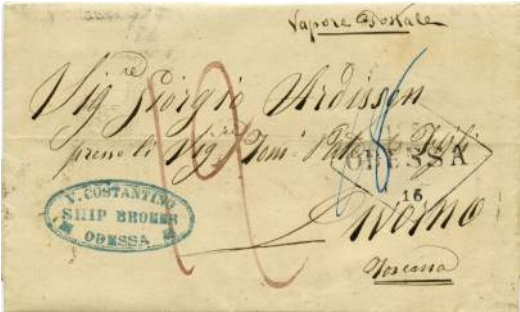 Vapore Postale
Sigre Giorgio Ardisson
presso li Sigri Tomi
ODESSA
16
Livorno
Toscana
V. COSTANTINO
SHIP BROKER
ODESSA
12